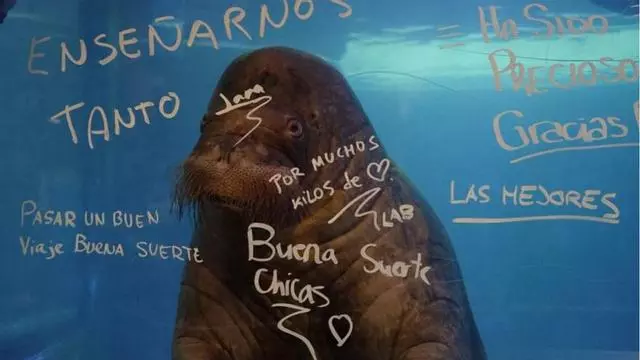 ENSEÑARNOS
TANTO
= HA SIDO
PRECIOSO
Gracias!
LAS MEJORES
Jana
POR MUCHOS
KILOS de ♡
LAB
PASAR UN BUEN
Viaje BUENA SUERTE
Buena Suerte
Chicas
♡